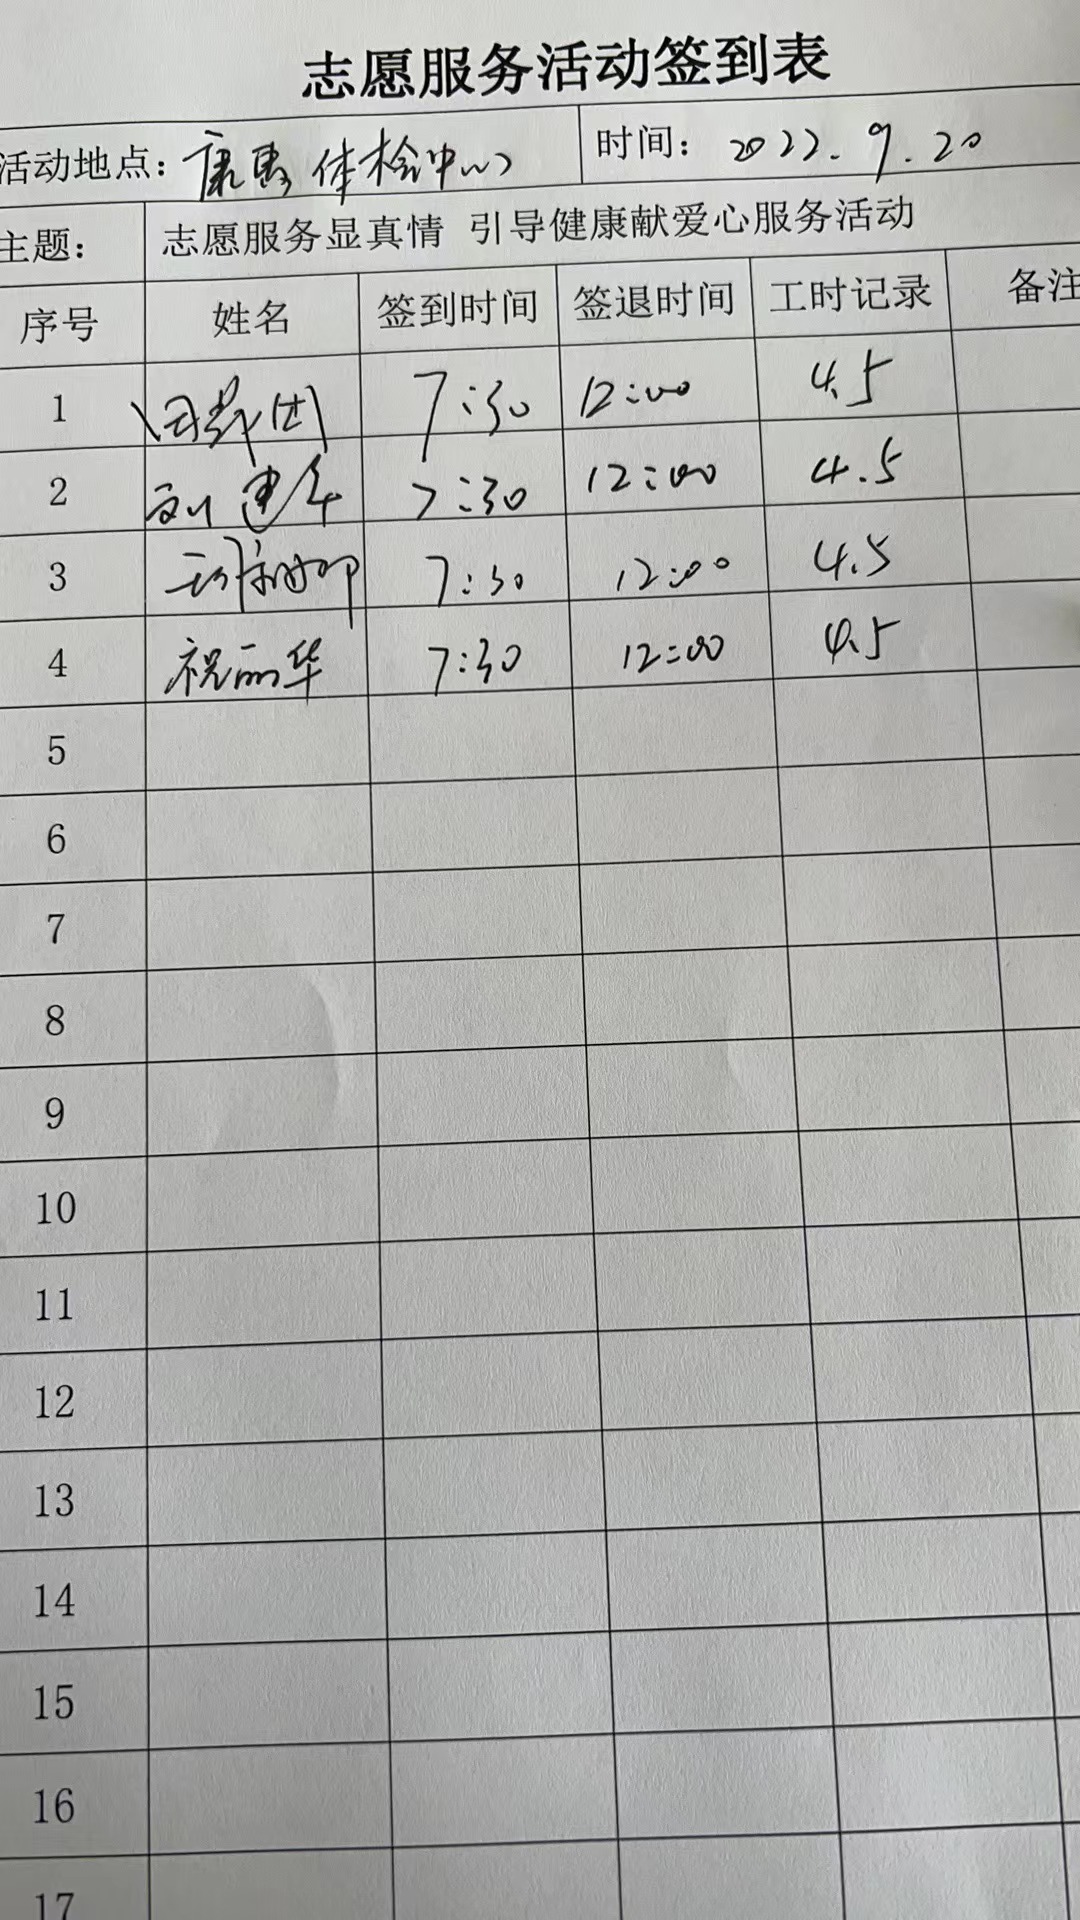 志愿服务活动签到表
活动地点：康惠体检中心 时间：2022.9.20
主题： 志愿服务显真情 引导健康献爱心服务活动
序号 姓名 签到时间 签退时间 工时记录 备注
1 7:30 12:00 4.5
2 刘建华 7:30 12:00 4.5
3 7:30 12:00 4.5
4 祝丽华 7:30 12:00 4.5
5
6
7
8
9
10
11
12
13
14
15
16
17